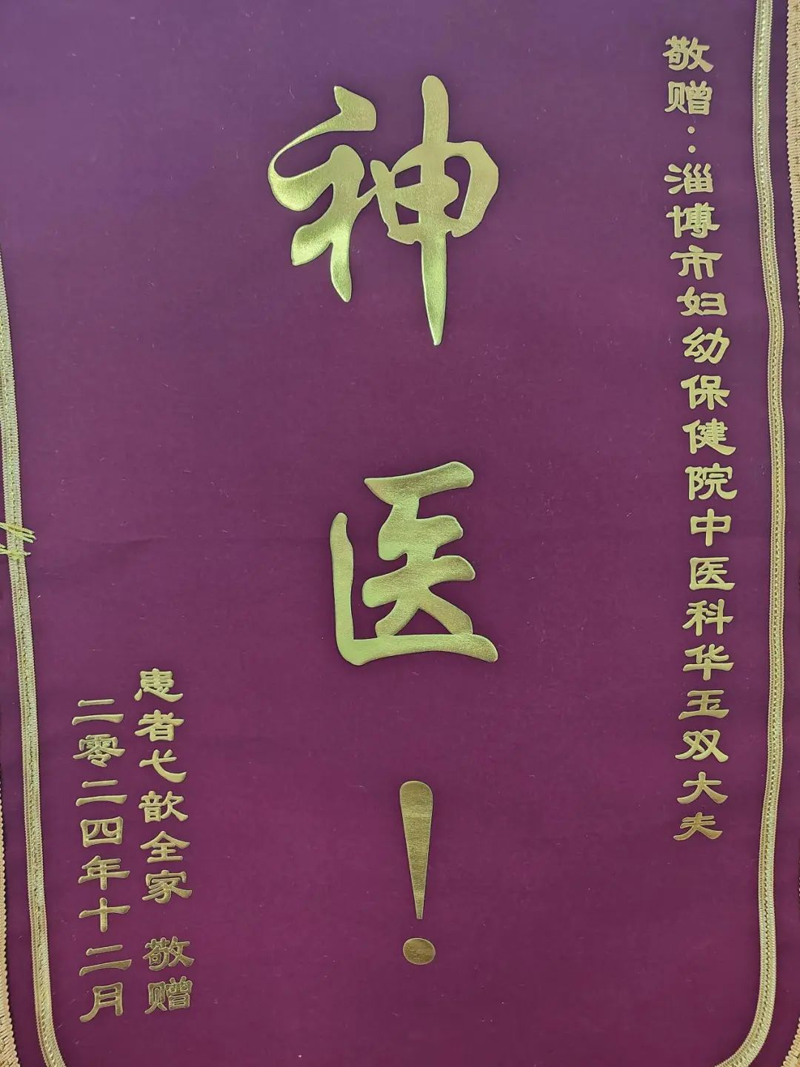 敬赠：淄博市妇幼保健院中医科华玉双大夫
神医！
患者弋歆全家 敬赠
二零二四年十二月